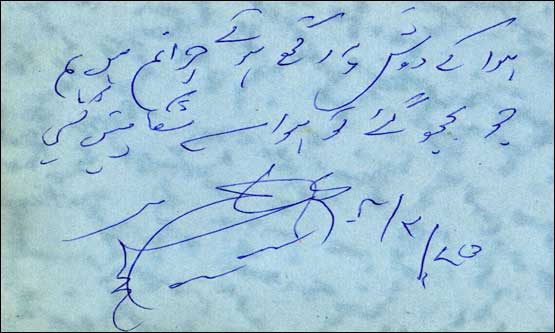 ہوا کے دوش پہ رکھے ہوئے چراغ ہیں ہم
جو بجھ گئے تو ہوا سے شکایتیں کیسی